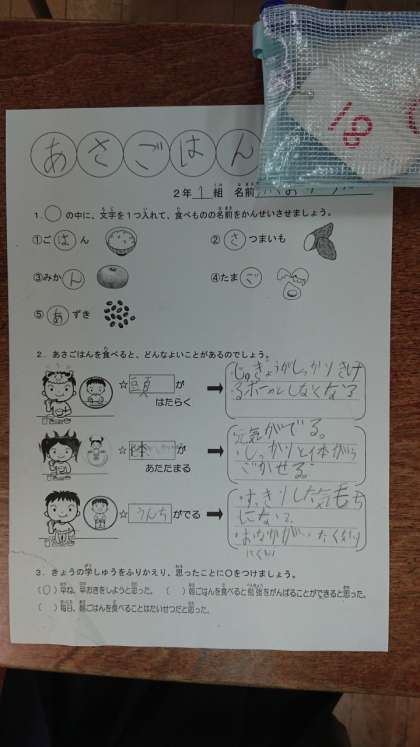 あさごはん
18
2年 1 組 名前
1. ○の中に、文字を1つ入れて、食べものの名前をかんせいさせましょう。
①ごはん ②さつまいも
③みかん ④たまご
⑤あずき
2. あさごはんを食べると、どんなよいことがあるのでしょう。
☆頭が
はたらく
じゅぎょうがしっかりきけ
るボーっとしなくなる
☆体が
あたたまる
元気がでる。
・しっかりと体がう
ごかせる
☆うんちがでる
はっきりした気もち
になって
おなかが
にくい
3. きょうの学しゅうをふりかえり、思ったことに○をつけましょう。
(○)早ね、早おきをしようと思った。 ( )朝ごはんを食べると勉強をがんばることができると思った。
( )毎日、朝ごはんを食べることはたいせつだと思った。